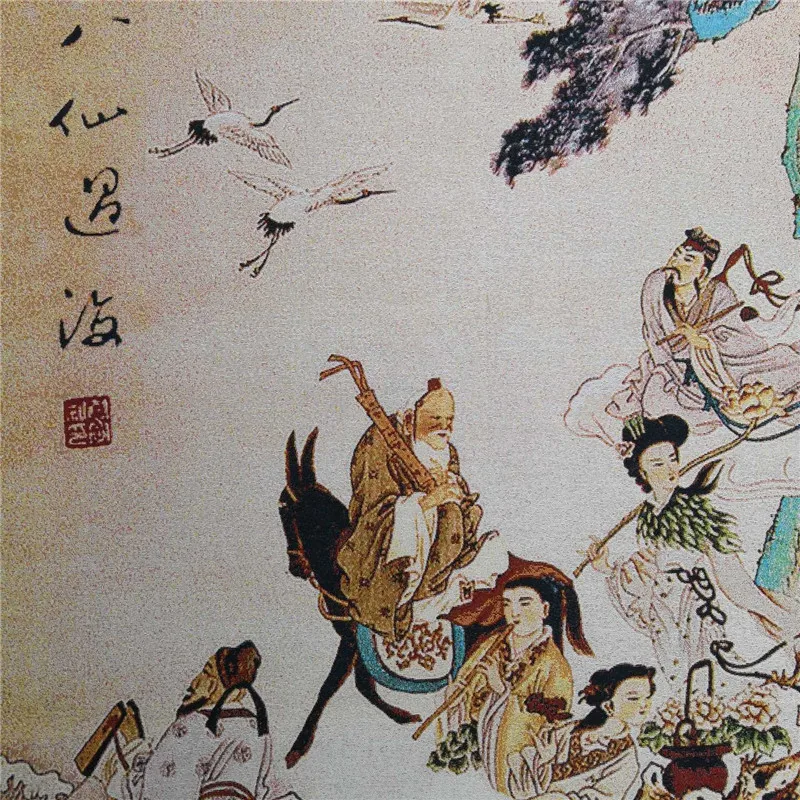 八仙過海